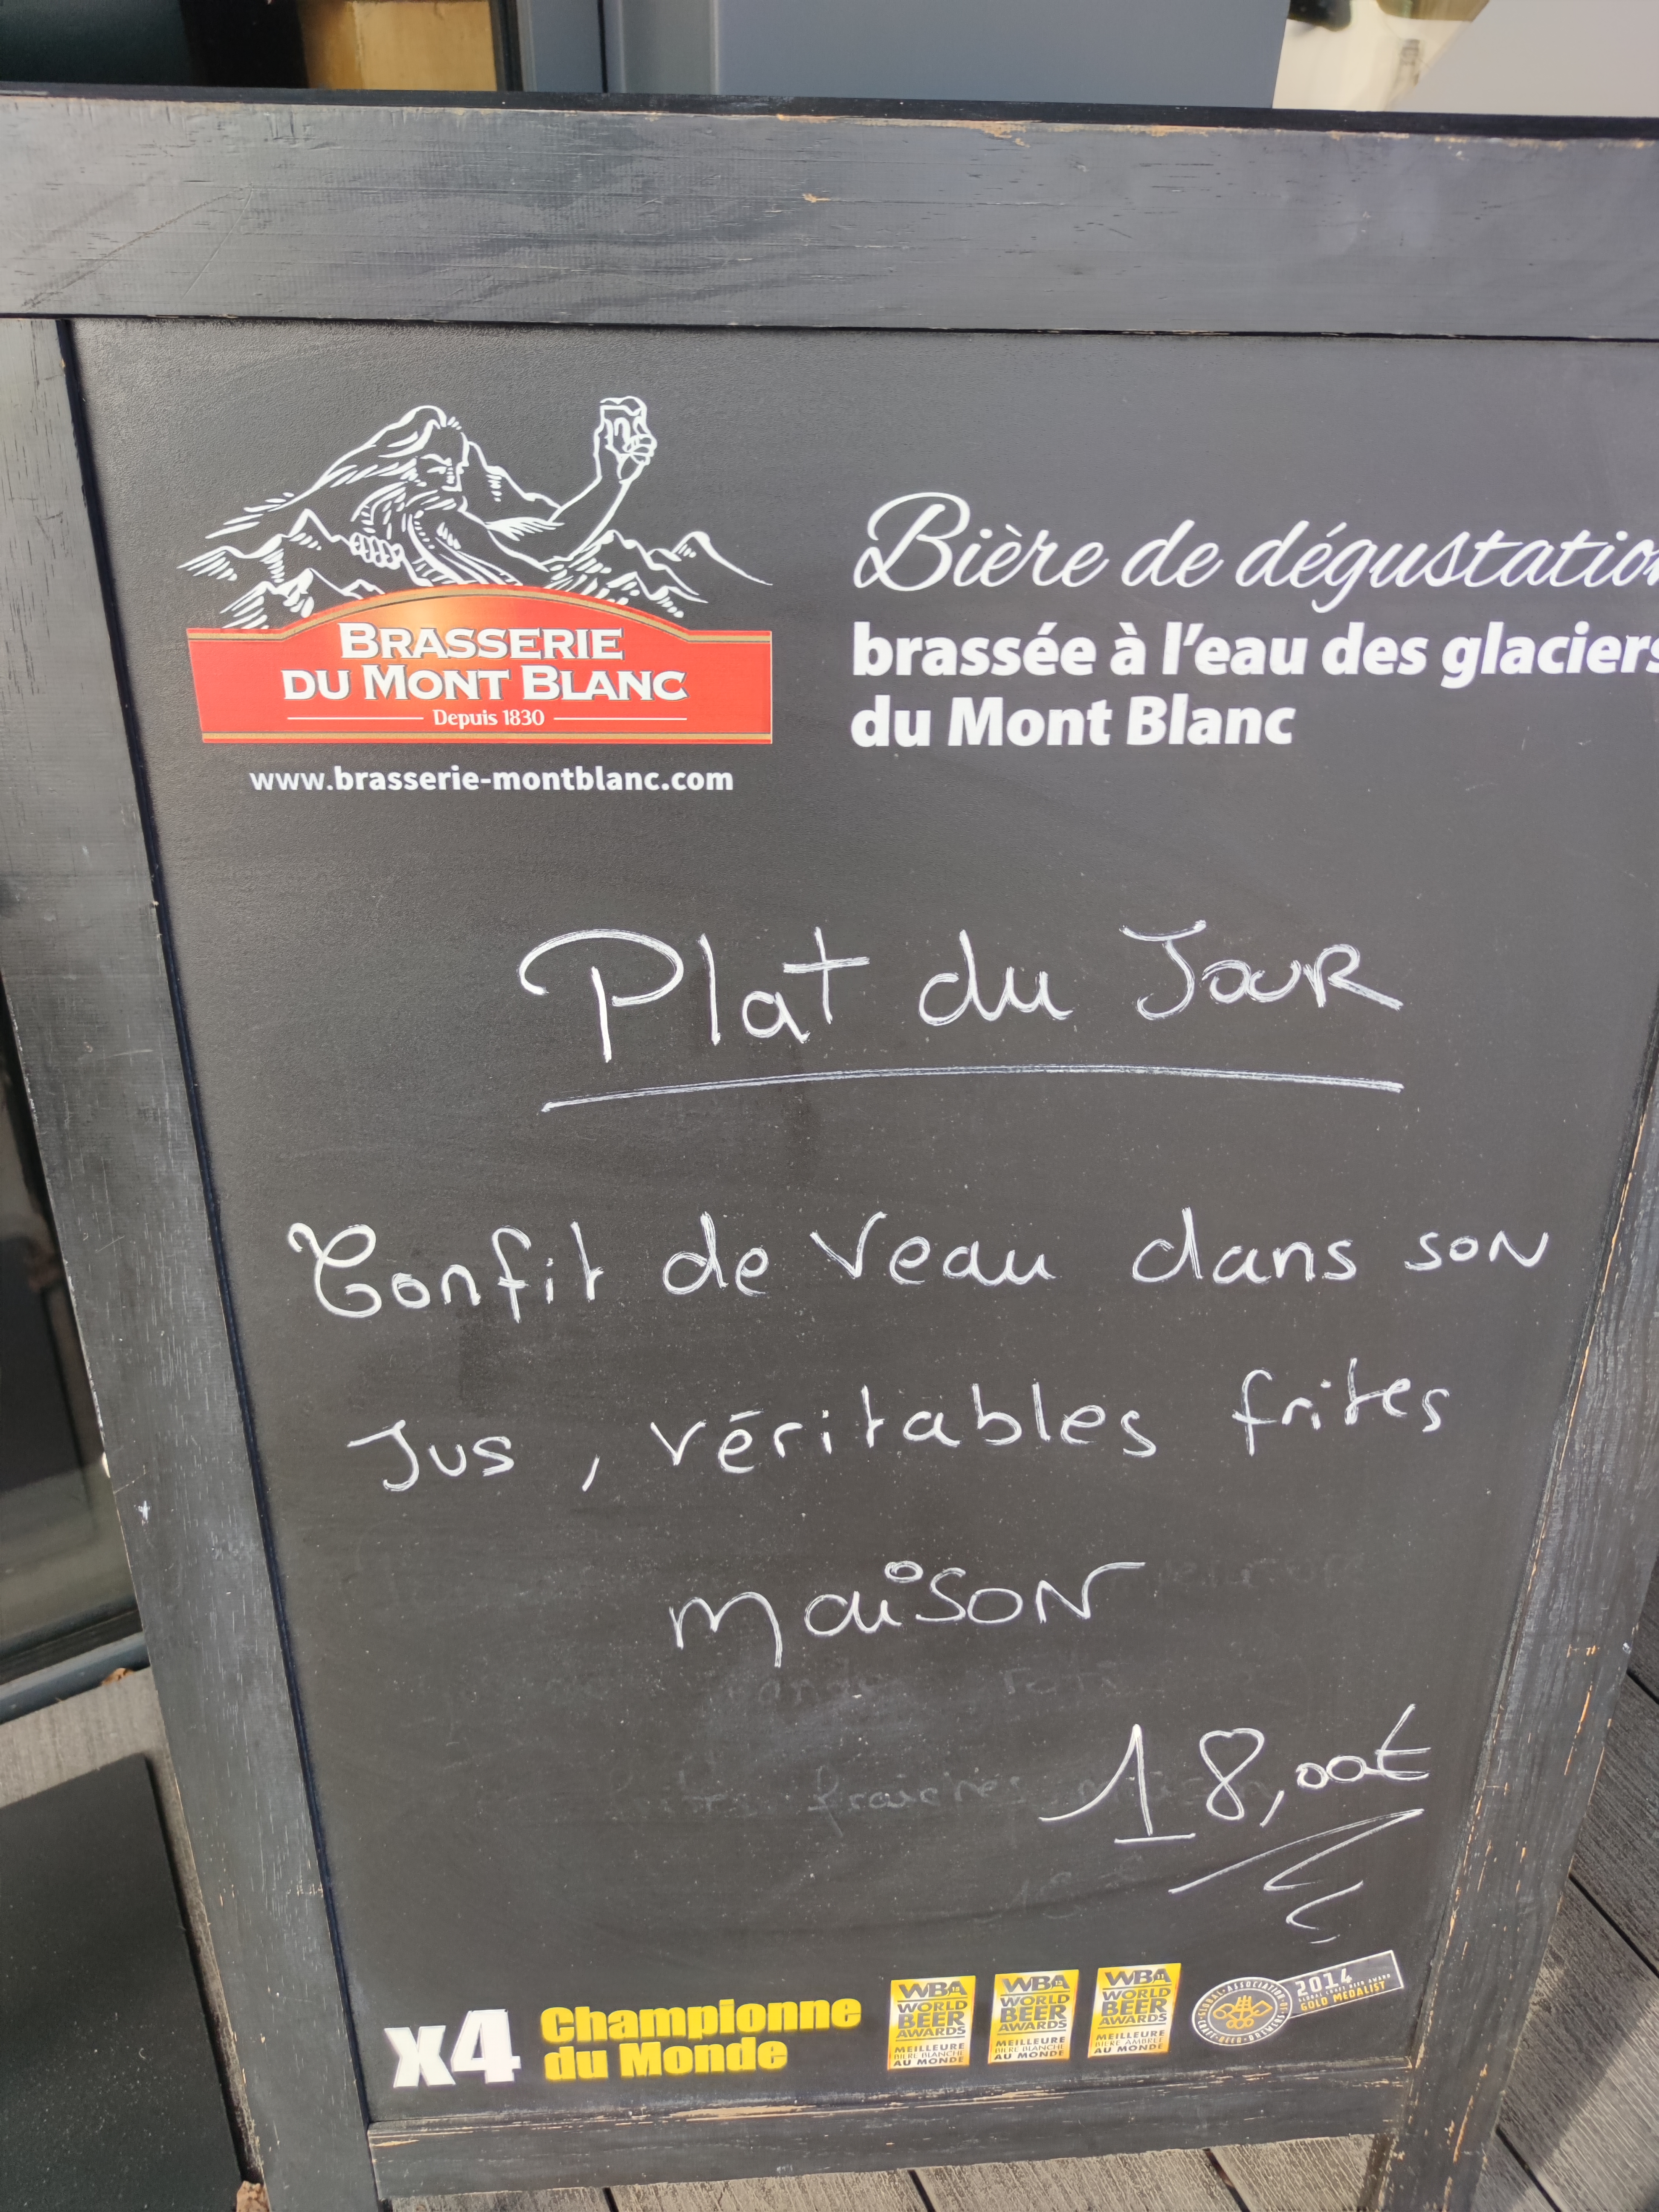 BRASSERIE
DU MONT BLANC
Depuis 1830
www.brasserie-montblanc.com
Bière de dégustation
brassée à l'eau des glaciers
du Mont Blanc
Plat du Jour
Confit de Veau dans son
Jus, véritables frites
maison
18,00€
x4 Championne
du Monde
WBA
WORLD
BEER
AWARDS
MEILLEURE
BIÈRE BLANCHE
AU MONDE
WBA
WORLD
BEER
AWARDS
MEILLEURE
BIÈRE BLANCHE
AU MONDE
WBA
WORLD
BEER
AWARDS
MEILLEURE
BIÈRE AMBRÉE
AU MONDE
2014
GOLD MEDALIST